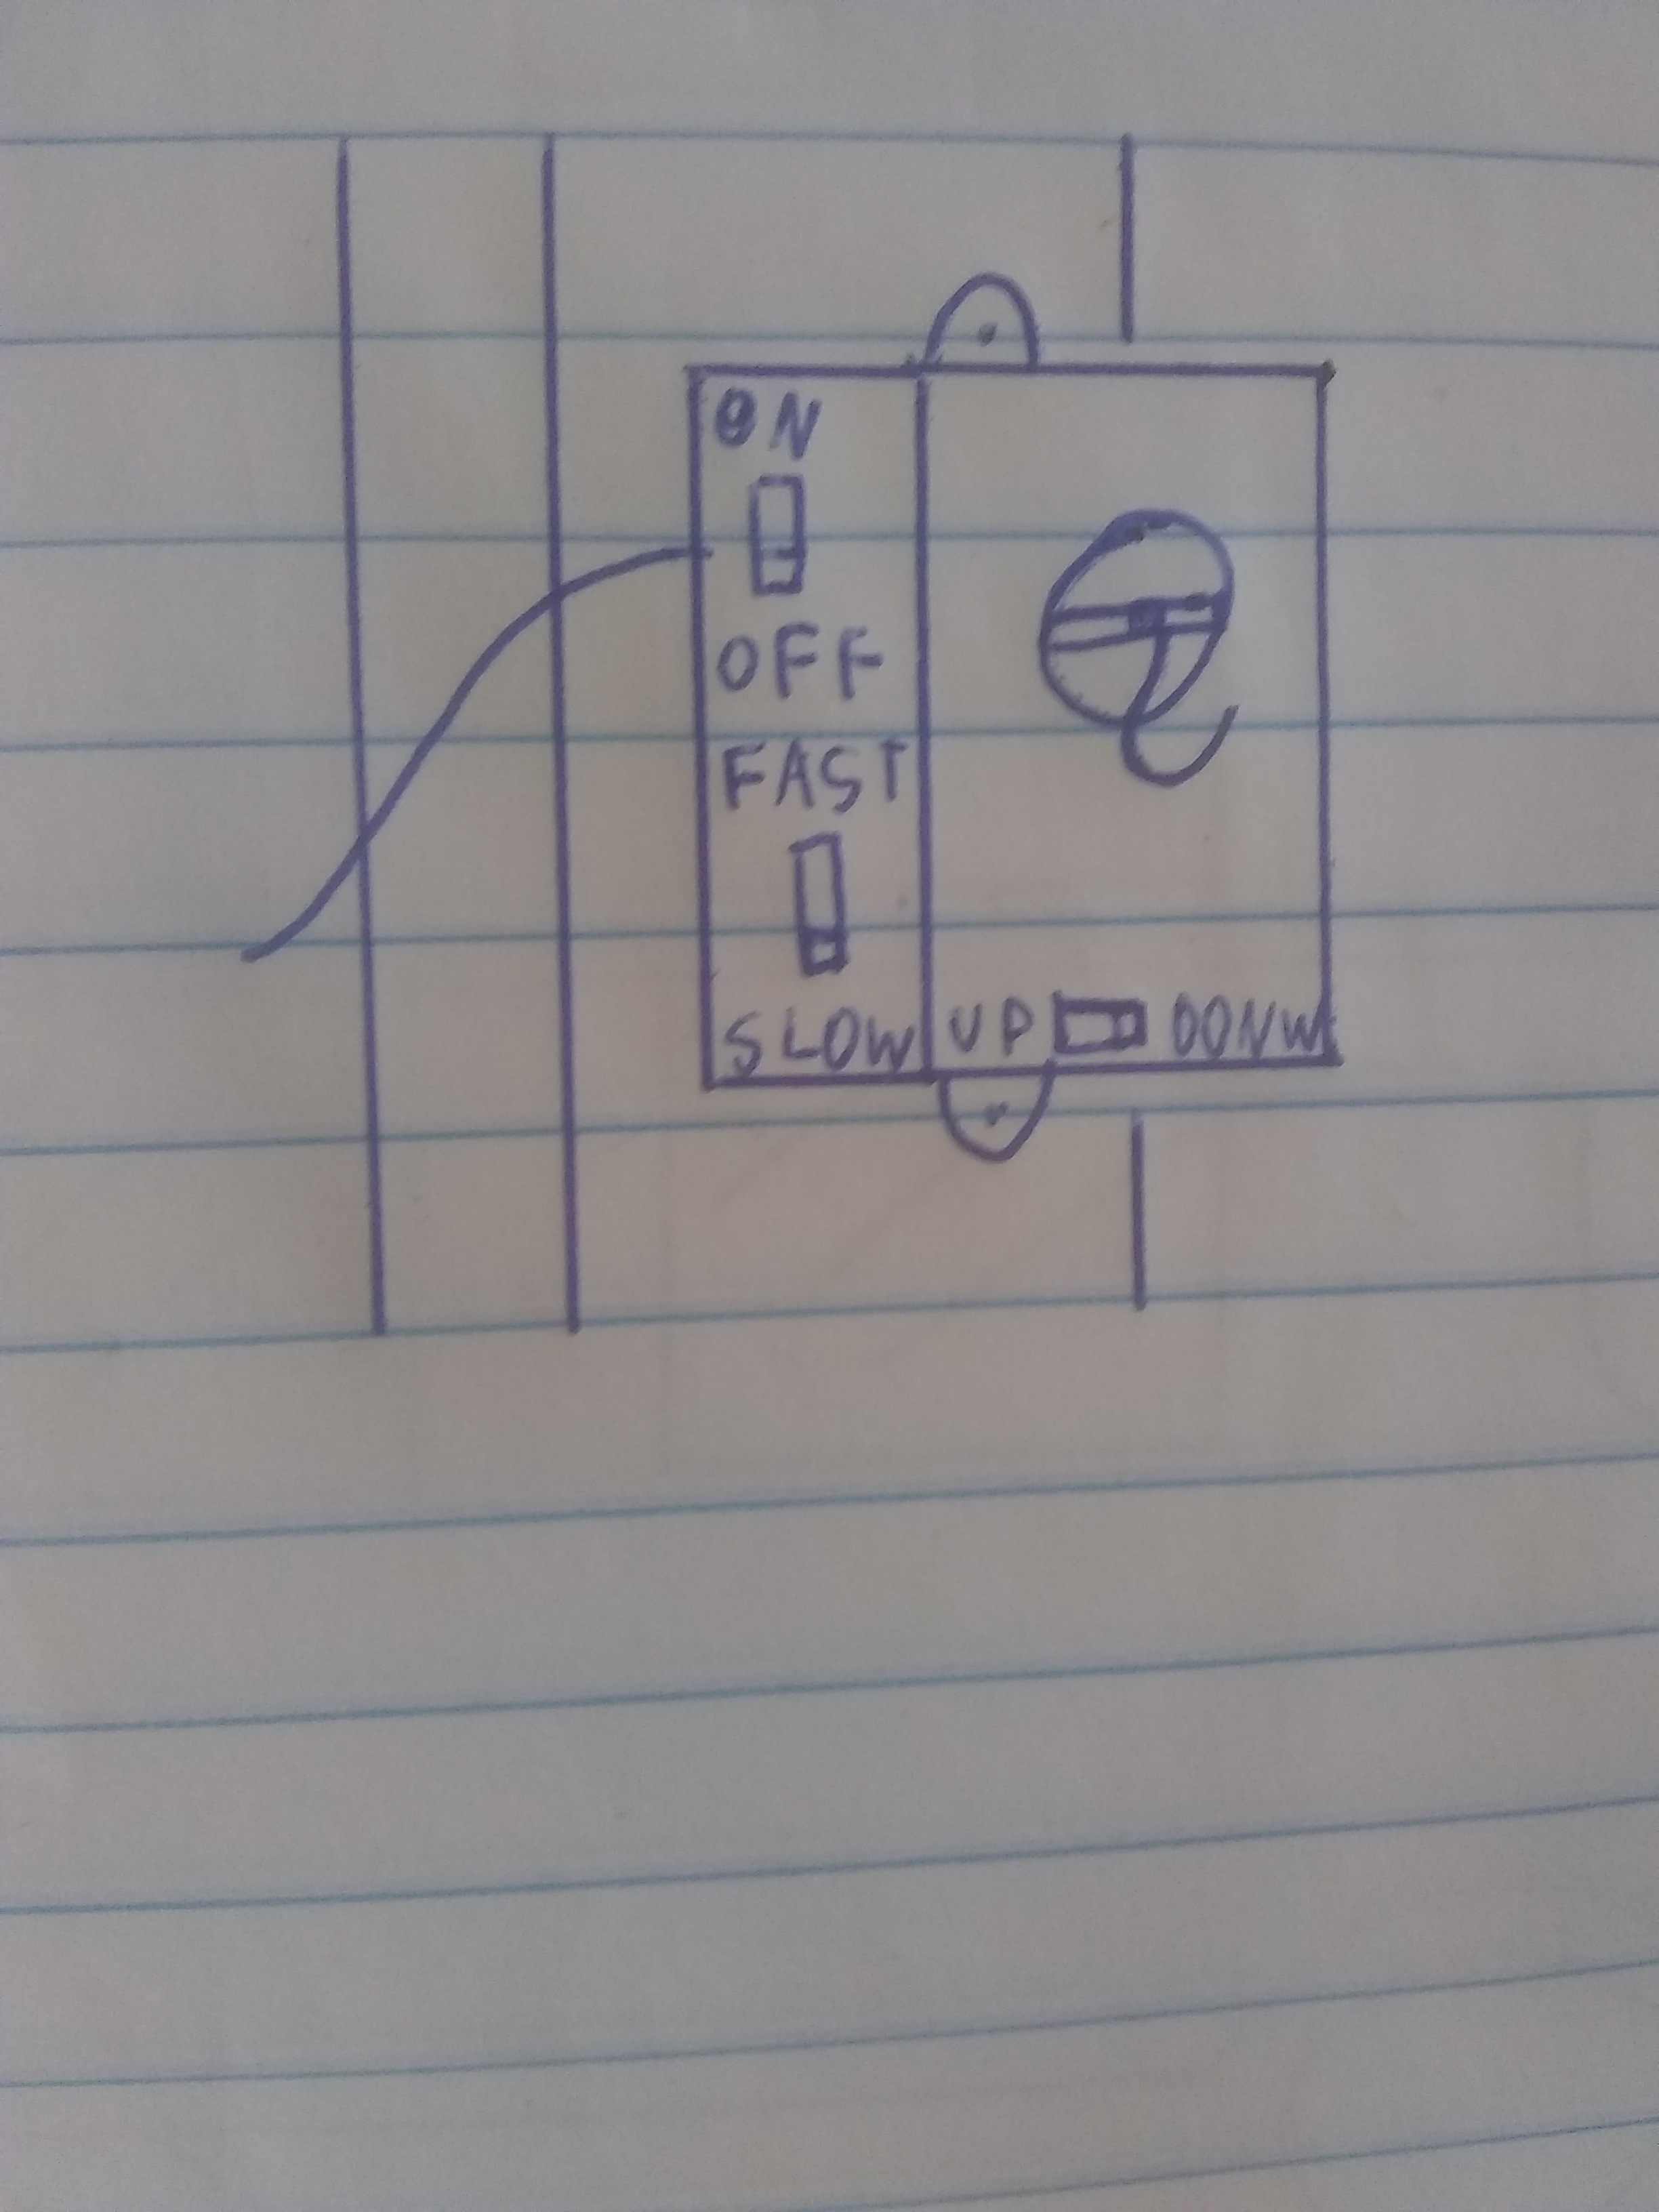 ON
OFF
FAST
SLOW
UP DONW